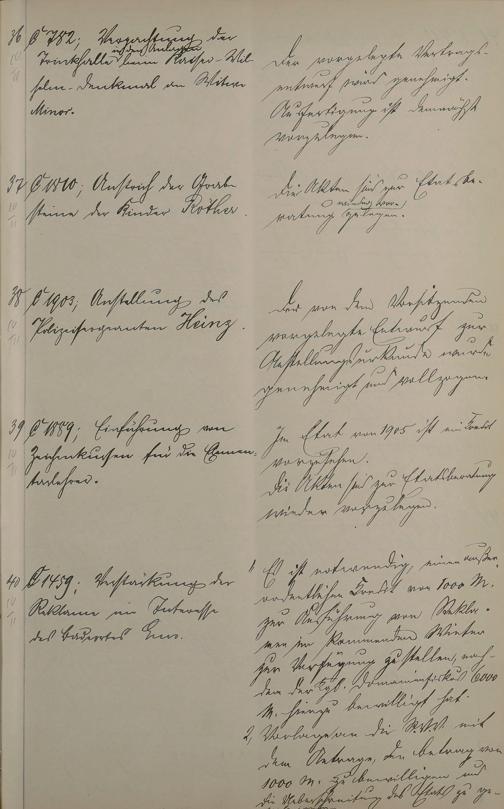 36 C 782; Verpachtung der
in den Anlagen
Trinkhalle beim Kaiser-Wil-
helm-Denkmal an Witwe
Minor.
Der vorgelegte Vertrags-
entwurf wird genehmigt.
Ausfertigung ist demnächst
vorzulegen.
37 C 1810; Anstrich der Grab-
steine der Kinder Rother.
Die Akten sind zur Etatsbe-
ratung
38 C 1903; Anstellung des
Polizeisergeanten Heinz.
Der von dem Vorsitzenden
vorgelegte Entwurf zur
Anstellungsurkunde wurde
genehmigt und vollzogen.
39 C 1889; Einführung von
Zeichenkursen für die Elemen-
tarlehrer.
Im Etat von 1905 ist ein Kredit
vorzusehen.
Die Akten sind zur Etatsberatung
wieder vorzulegen.
40 C 1459; Verstärkung der
Reklame im Interesse
des Badeortes Ems.
1, Es ist notwendig, einen außer-
ordentlichen Kredit von 1000 M.
zur Ausführung von Rekla-
men im kommenden Winter
zur Verfügung zu stellen, nach-
dem der Kgl. Domänenfiskus 6000
M. hierzu bewilligt hat.
2, Vorlage an die St.V.V. mit
dem Antrage, den Betrag von
1000 M. zu bewilligen und
die Ueberschreitung des Etats zu ge-